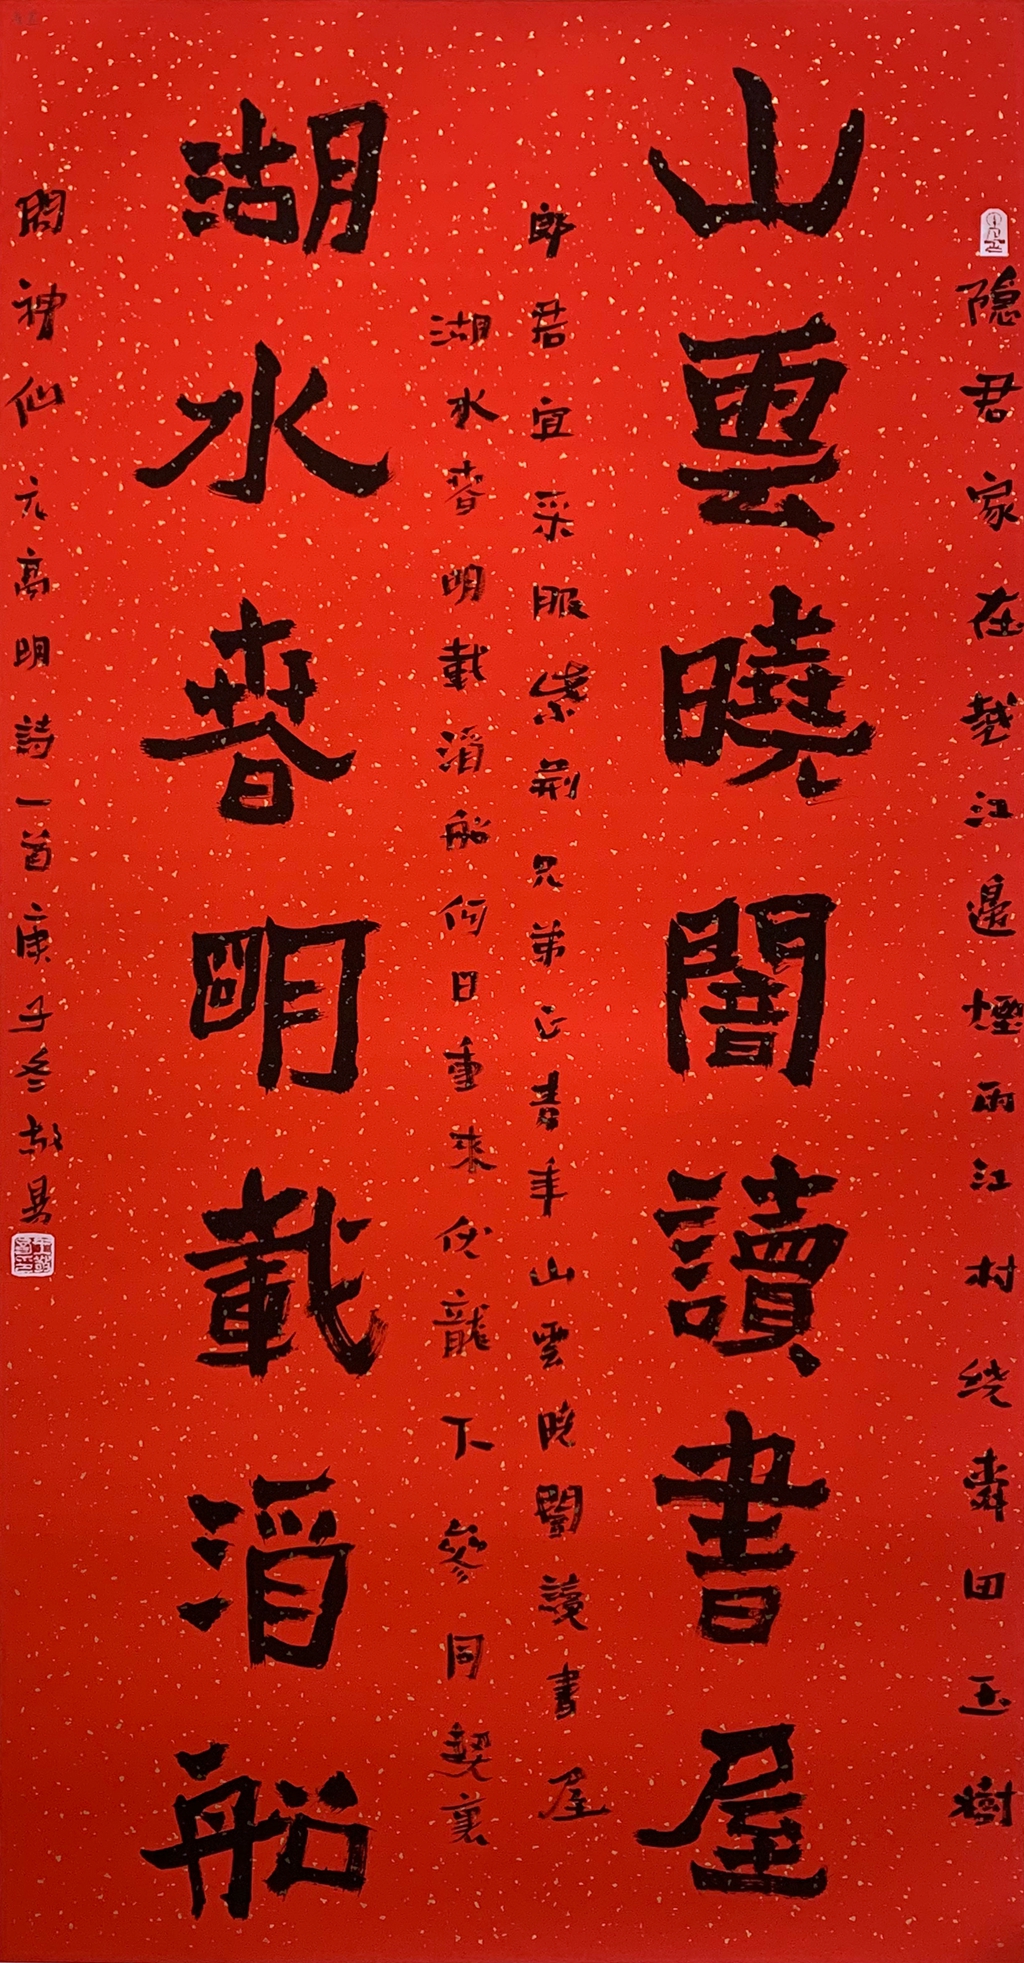 隐君家在越江邊煙雨江村绕舜田玉樹
山雲曉闇讀書屋
郎君宜采服紫荆兄弟正青年山雲曉闇讀書屋
湖水春明載酒船何日重來伏龍下參同契裏
湖水春明載酒船
問神仙元高明詩一首庚子冬